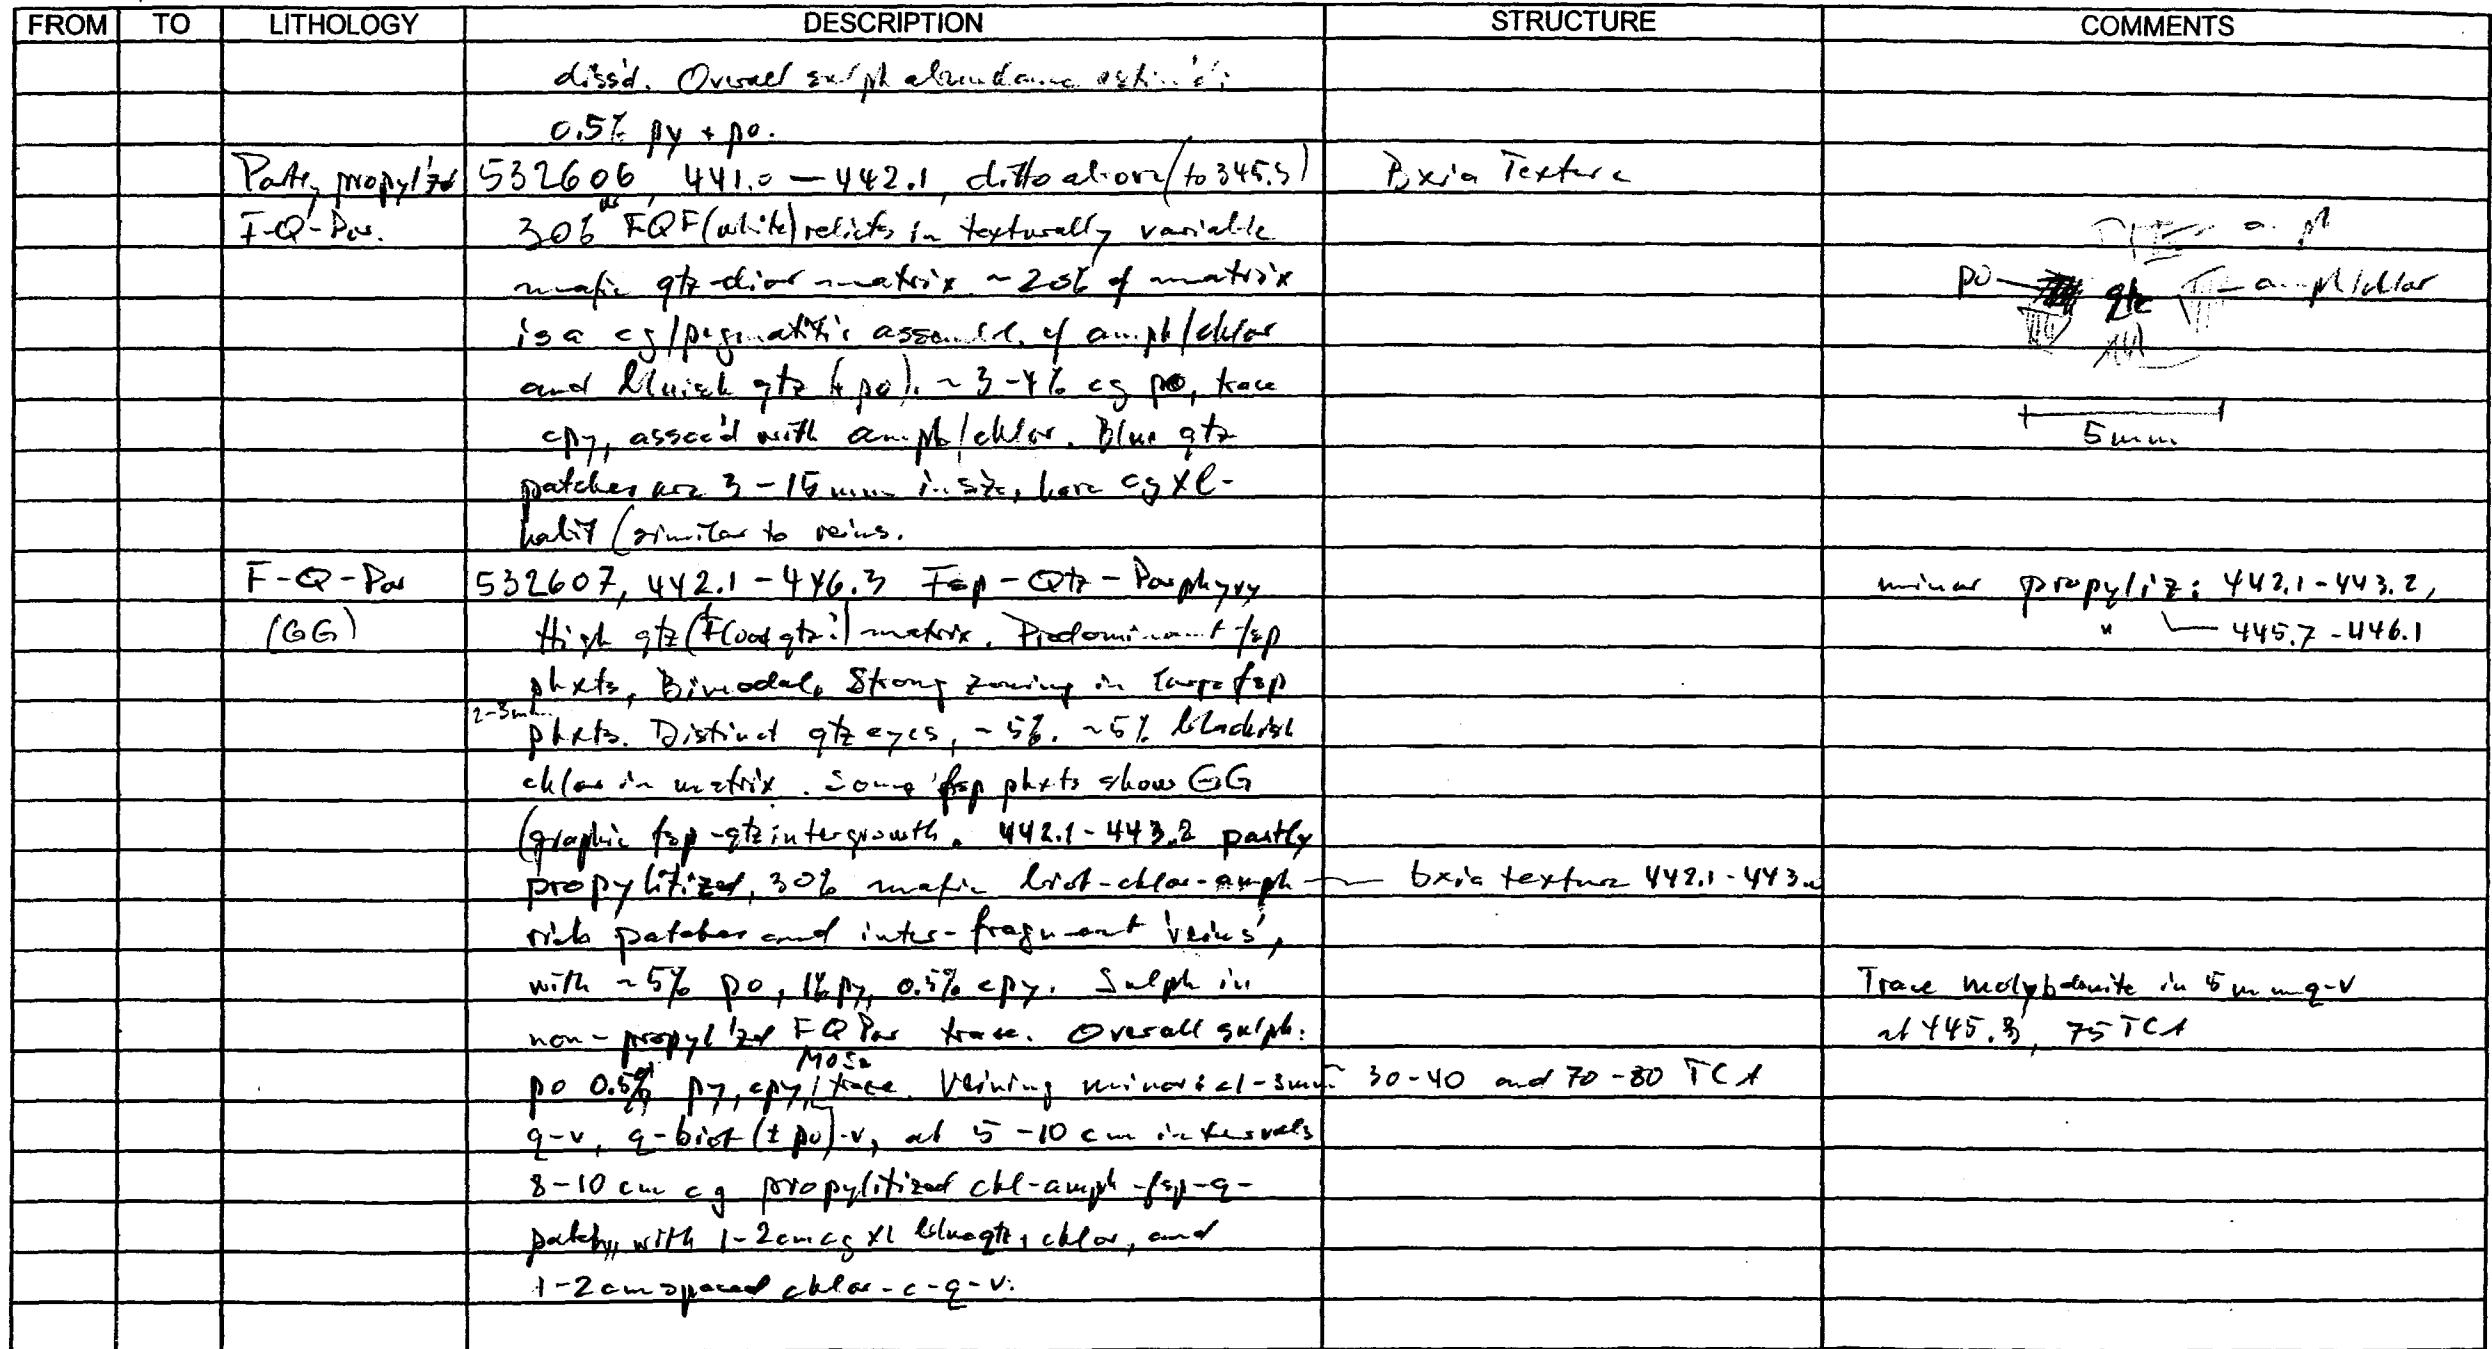 FROM TO LITHOLOGY DESCRIPTION STRUCTURE COMMENTS
diss'd. Overall sulph abundance estim'd:
0.5% py + po.
Partly propyl'zd 532606, 441.0 — 442.1, ditto above (to 345.5) Bxia Texture
F-Q-Por. 30% FQF (white) relicts in texturally variable
amph
mafic qtz-dior matrix ~20% of matrix
po qtz amph/chlor
is a cg/pegmatitic assembl. of amph/chlor
and bluish qtz (+ po). ~3-4% cg po, trace
cpy, assoc'd with amph/chlor. Blue qtz
5mm
patches are 3-15 mm in size, have cg xl-
habit (similar to veins.
F-Q-Por 532607, 442.1-446.3 Fsp-Qtz-Porphyry minor propyliz: 442.1-443.2,
(GG) High qtz (Flood qtz?) matrix. Predominant fsp " 445.7-446.1
phxts, Bimodal, Strong zoning in large fsp
2-3mm
phxts. Distinct qtz eyes, ~5%. ~5% blackish
chlor in matrix. Some fsp phxts show GG
(graphic fsp-qtz intergrowth. 442.1-443.2 partly
propylitized, 30% mafic biot-chlor-amph — bxia texture 442.1-443.2
rich patches and inter-fragment 'veins',
with ~5% po, 1% py, 0.5% cpy. Sulph in Trace molybdenite in 5 mm q-v
non-propyl'zd FQ Por trace. Overall sulph: at 445.3, 75 TCA
MoS2
po 0.5% py, cpy, trace. Veining minor: <1-3mm 30-40 and 70-80 TCA
q-v, q-biot (± po)-v, at 5-10 cm intervals
8-10 cm cg propylitized chl-amph-fsp-q-
patch, with 1-2 cm cg xl blue qtz, chlor, and
1-2 cm spaced chlor-c-q-v.